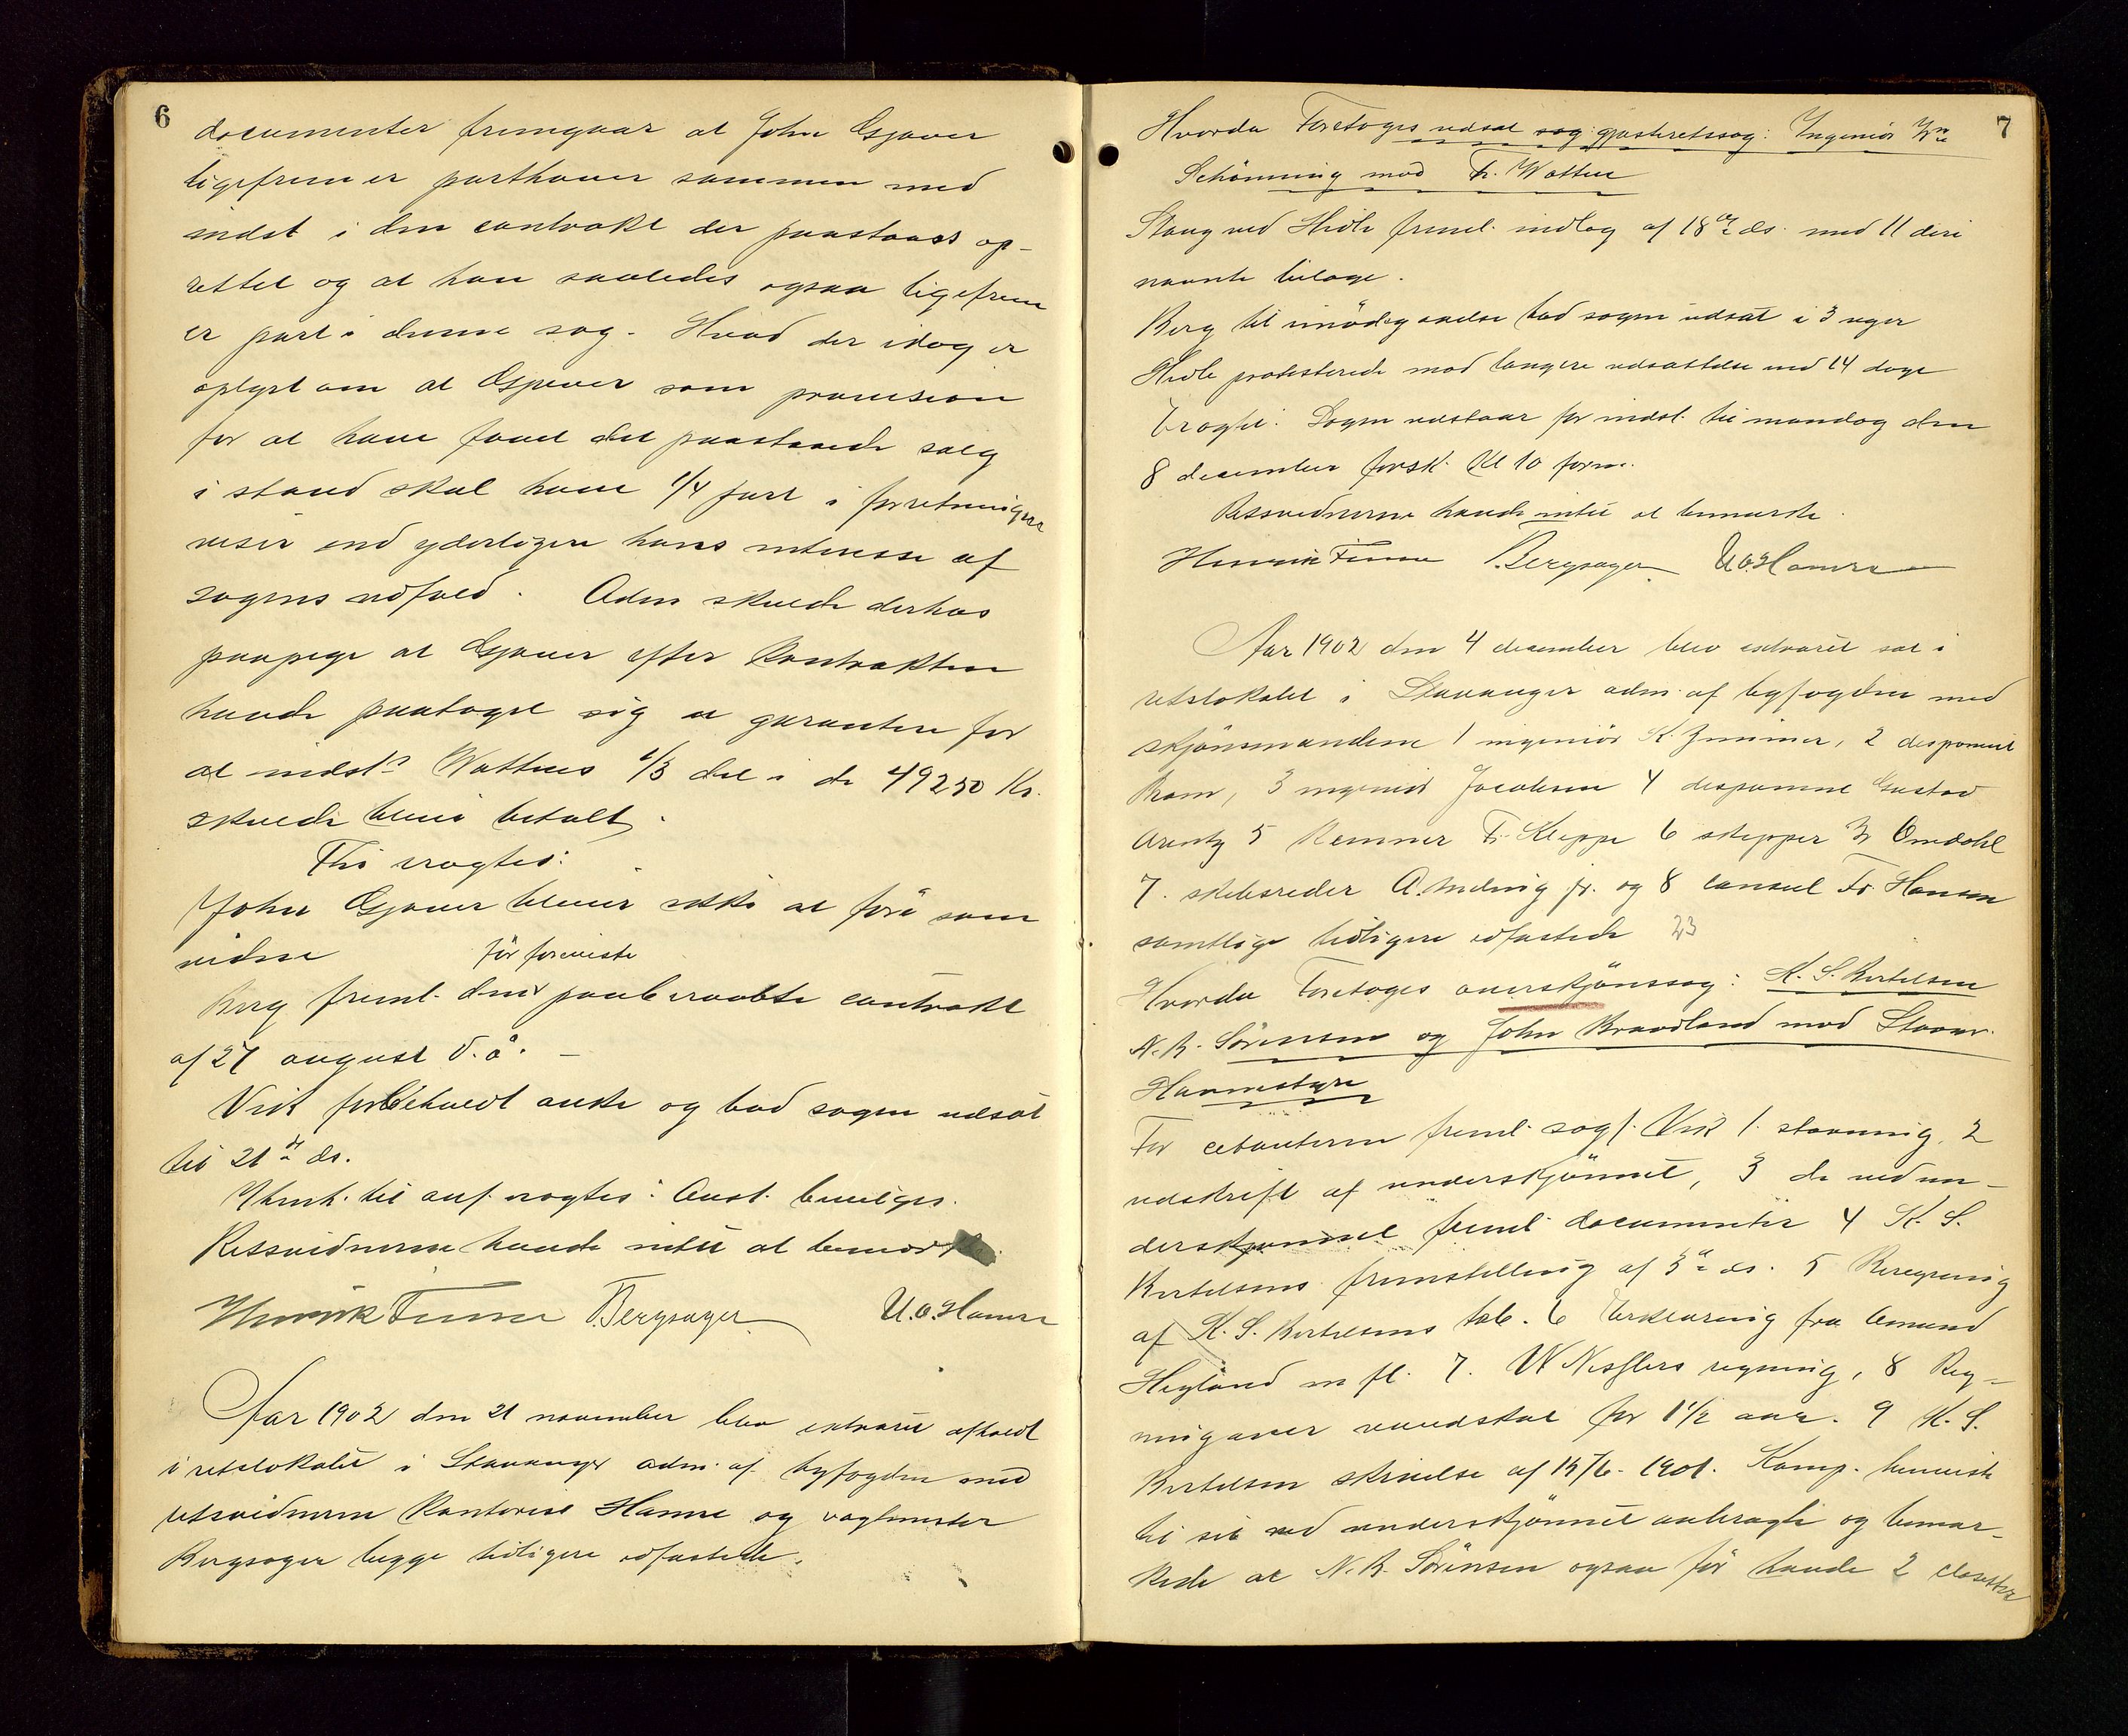 6
documenter fremgaar at John Gjøver
ligefrem er parthaver sammen med
indst i den contrakt der paastaaes op-
rettet og at han saaledes ogsaa ligefrem
er part i denne sag. Hvad der idag er
oplyst om at Gjøver som provision
for at have faaet det paastaaede salg
i stand skal have 1/4 part i forretningen
viser end yderligere hans interesse af
sagens udfald. Adm skulde derhos
paapege at Gjøver efter Kontrakten
havde paataget sig at garantere for
at indst Wattnes 1/3 del i de 49250 Kr.
skulde blive betalt.
Thi eragtes:
John Gjøver bliver ikke at føre som
vidne
før foreviste
Berg freml. den paaberaabte contrakt
af 27 august d. å. —
Vik forbeholdt anke og bad sagen udsat
til 21 ds.
Ihenh. til anf. eragtes: Anst. bevilges.
Retsvidnerne havde intet at bemærke.
Henrik Finne T. Bergsager U. O. Hamre
Aar 1902 den 21 november blev extraret afholdt
i retslokalet i Stavanger adm. af byfogden med
retsvidnerne Kontorist Hamre og vagtmester
Bergsager begge tidligere edfæstede.
7
Hvorda Foretoges udsat sag gjesteretssag: Ingeniør
Schönning mod Fr. Wattne
Stang ved Hidle freml. indlæg af 18 ds. med 11 deri
nævnte bilage.
Berg til imødegaaelse bad sagen udsat i 3 uger
Hidle protesterede mod længere udsættelse end 14 dage
Eragtet: Sagen udstaar for indst. til mandag den
8 december førstk. Kl 10 form.
Retsvidnerne havde intet at bemærke.
Henrik Finne T. Bergsager U. O. Hamre
Aar 1902 den 4 december blev extraret sat i
retslokalet i Stavanger adm. af byfogden med
skjønsmændene 1 ingeniør K. Zimmer, 2 disponent
Bram, 3 ingeniør Jacobsen 4 disponent Gustav
Arentz 5 Kemner Fr. Kleppe 6 skipper Omdahl
7. skibsreder A. Meling jr. og 8 consul Fr. Hansen
samtlige tidligere edfæstede 23
Hvorda Foretoges overskjønssag: K. S. Bertelsen
N. B. Sörensen og John Braadland mod Stavan.
Havnestyre
For citanterne freml. sagf. Vik 1. stævning, 2
udskrift af underskjønnet, 3 de ved un-
derskjønnet freml. documenter 4 K. S.
Bertelsens fremstilling af 3 ds. 5 Beregning
af K. S. Bertelsens tab. 6 Erklæring fra Omund
Hegland m fl. 7. W Nesslers regning, 8 Reg-
ning over vandskat for 1 1/2 aar. 9 K. S.
Bertelsen skrivelse af 15/6 - 1901. Komp. henviste
til sit ved underskjønnet anbragte og bemær-
kede at N. B. Sörensen ogsaa før havde 2 closetter